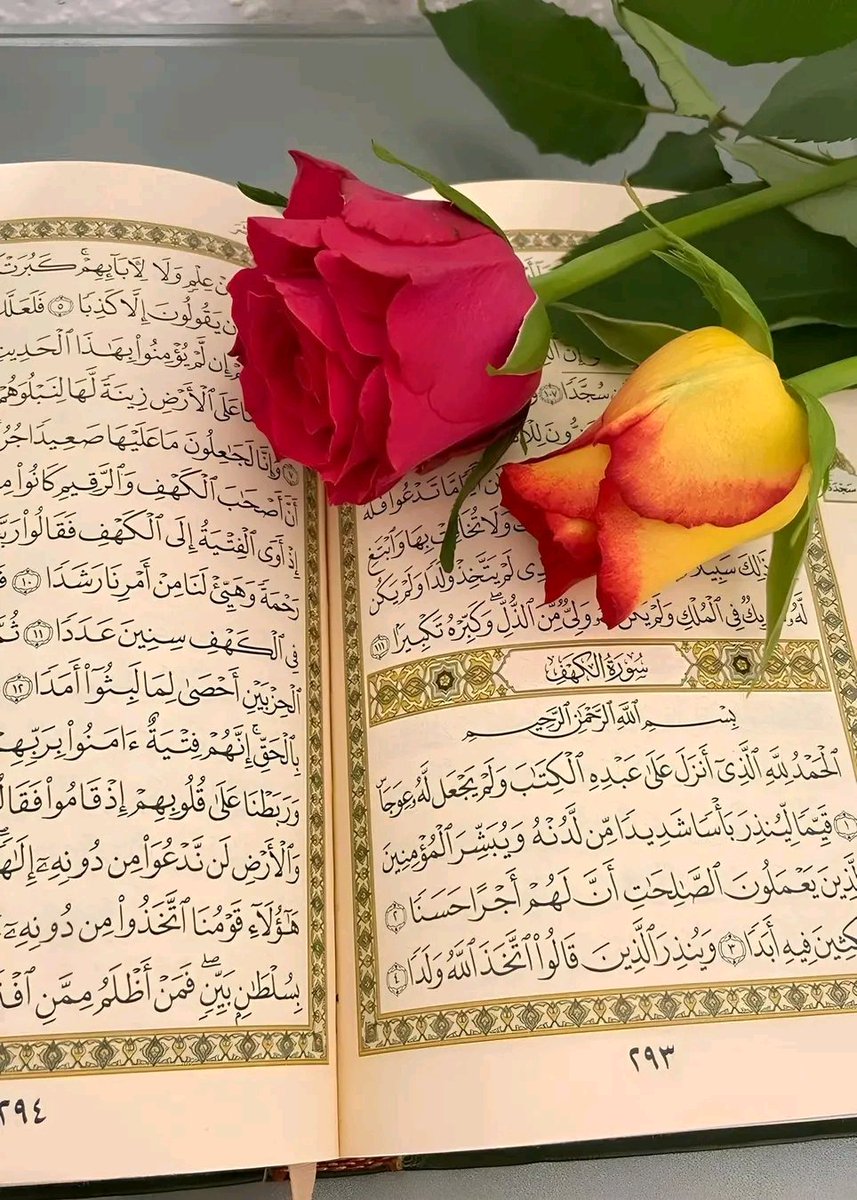 سُجَّدٗا ١٠٧
مَّا تَدۡعُواْ فَلَهُ
وَلَا تُخَافِتۡ بِهَا وَٱبۡتَغِ
ذَٰلِكَ لَمۡ يَتَّخِذۡ وَلَدٗا وَلَمۡ يَكُن
لَّهُۥ فِي ٱلۡمُلۡكِ وَلَمۡ يَكُن وَلِيّٞ مِّنَ ٱلذُّلِّۖ وَكَبِّرۡهُ تَكۡبِيرَۢا ١١١
سُورَةُ الكَهۡفِ
بِسۡمِ ٱللَّهِ ٱلرَّحۡمَٰنِ ٱلرَّحِيمِ
ٱلۡحَمۡدُ لِلَّهِ ٱلَّذِيٓ أَنزَلَ عَلَىٰ عَبۡدِهِ ٱلۡكِتَٰبَ وَلَمۡ يَجۡعَل لَّهُۥ عِوَجَاۜ
١ قَيِّمٗا لِّيُنذِرَ بَأۡسٗا شَدِيدٗا مِّن لَّدُنۡهُ وَيُبَشِّرَ ٱلۡمُؤۡمِنِينَ
ٱلَّذِينَ يَعۡمَلُونَ ٱلصَّٰلِحَٰتِ أَنَّ لَهُمۡ أَجۡرًا حَسَنٗا ٢
كِثِينَ فِيهِ أَبَدٗا ٣ وَيُنذِرَ ٱلَّذِينَ قَالُواْ ٱتَّخَذَ ٱللَّهُ وَلَدٗا ٤
٢٩٣
مِنۡ عِلۡمٖ وَلَا لِأٓبَآئِهِمۡۚ كَبُرَتۡ
يَقُولُونَ إِلَّا كَذِبٗا ٥ فَلَعَلَّكَ
إِن لَّمۡ يُؤۡمِنُواْ بِهَٰذَا ٱلۡحَدِيثِ
مَا عَلَى ٱلۡأَرۡضِ زِينَةٗ لَّهَا لِنَبۡلُوَهُمۡ
٧ وَإِنَّا لَجَٰعِلُونَ مَا عَلَيۡهَا صَعِيدٗا جُرُ
أَنَّ أَصۡحَٰبَ ٱلۡكَهۡفِ وَٱلرَّقِيمِ كَانُواْ مِ
إِذۡ أَوَى ٱلۡفِتۡيَةُ إِلَى ٱلۡكَهۡفِ فَقَالُواْ رَبَّ
رَحۡمَةٗ وَهَيِّئۡ لَنَا مِنۡ أَمۡرِنَا رَشَدٗا ١٠ فَ
فِي ٱلۡكَهۡفِ سِنِينَ عَدَدٗا ١١ ثُمَّ
ٱلۡحِزۡبَيۡنِ أَحۡصَىٰ لِمَا لَبِثُوٓاْ أَمَدٗا ١٢
بِٱلۡحَقِّۚ إِنَّهُمۡ فِتۡيَةٌ ءَامَنُواْ بِرَبِّهِمۡ
وَرَبَطۡنَا عَلَىٰ قُلُوبِهِمۡ إِذۡ قَامُواْ فَقَالُ
وَٱلۡأَرۡضِ لَن نَّدۡعُوَاْ مِن دُونِهِۦٓ إِلَٰهٗاۖ
هَٰٓؤُلَآءِ قَوۡمُنَا ٱتَّخَذُواْ مِن دُونِهِۦٓ
بِسُلۡطَٰنِۭ بَيِّنٖۖ فَمَنۡ أَظۡلَمُ مِمَّنِ ٱفۡتَ
٢٩٤